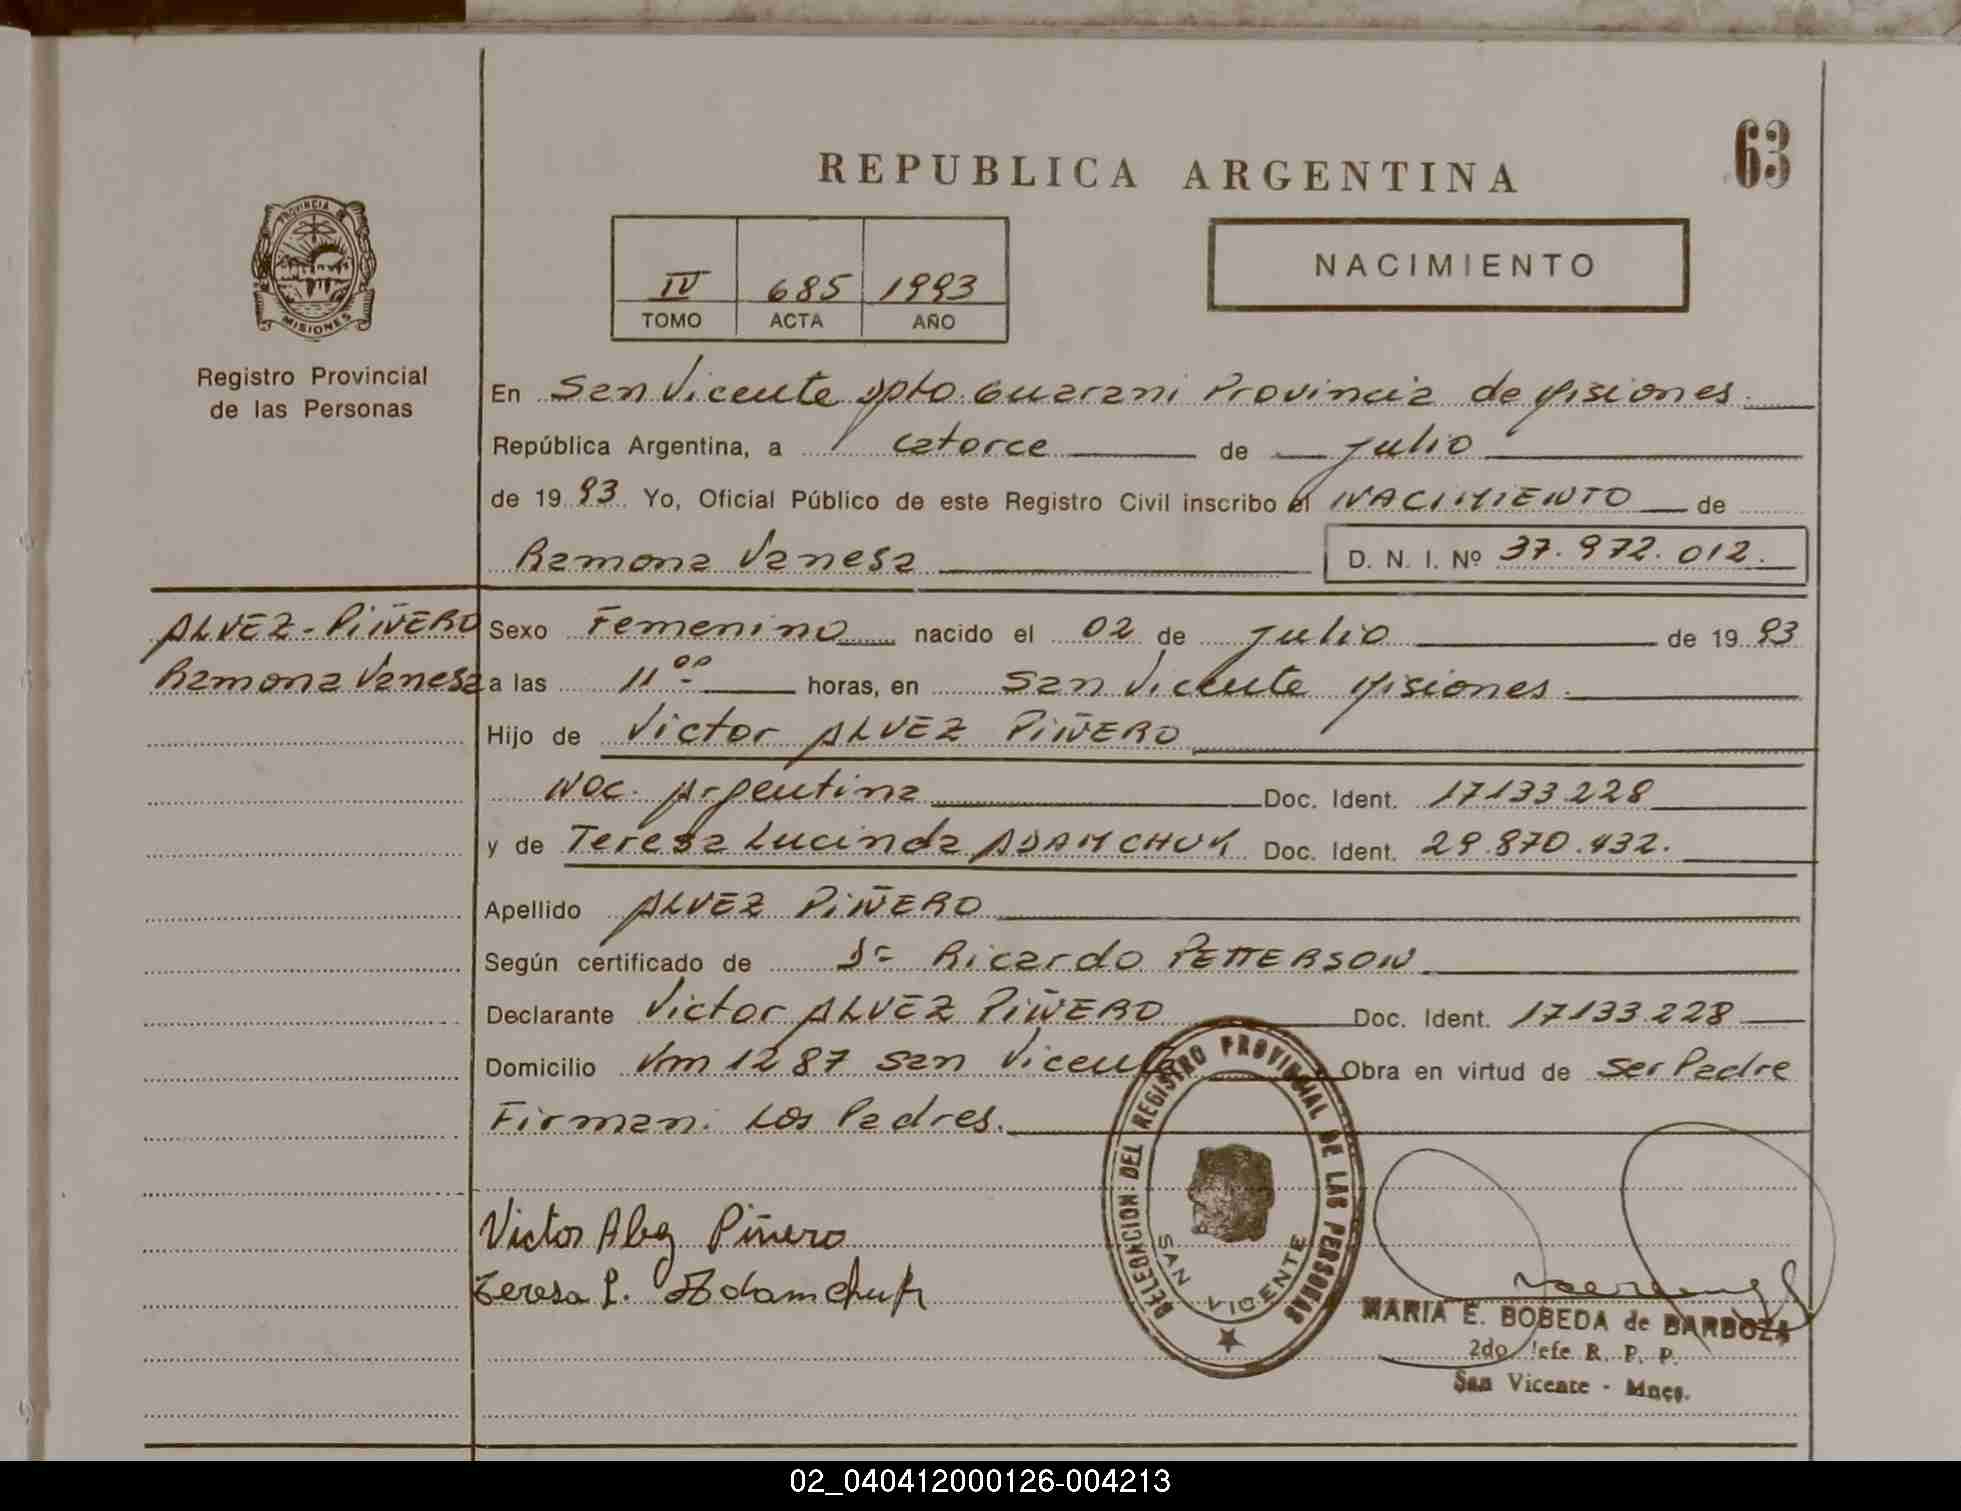 63
REPUBLICA ARGENTINA
PROVINCIA DE
MISIONES
Registro Provincial
de las Personas
IV 685 1993
TOMO ACTA AÑO
NACIMIENTO
En San Vicente Dpto. Guarani Provincia de Misiones.
República Argentina, a catorce de Julio
de 1993 Yo, Oficial Público de este Registro Civil inscribo el NACIMIENTO de
Ramona Vanesa D. N. I. Nº 37.972.012.
ALVEZ-PIÑERO
Ramona Vanesa
Sexo Femenino nacido el 02 de Julio de 1993
a las 11⁰⁰ horas, en San Vicente Misiones.
Hijo de Victor ALVEZ PIÑERO
Nac. Argentina Doc. Ident. 17133.228
y de Teresa Lucinda ADAMCHUK Doc. Ident. 29.870.432.
Apellido ALVEZ PIÑERO
Según certificado de Dr Ricardo PETTERSON
Declarante Victor ALVEZ PIÑERO Doc. Ident. 17133.228
Domicilio Km 1287 San Vicente Obra en virtud de ser Padre
Firman: Los Padres.
Victor Alvez Piñero
Teresa L. Adamchuk
DELEGACION DEL REGISTRO PROVINCIAL DE LAS PERSONAS
SAN VICENTE
MARIA E. BOBEDA de BARBOZA
2do Jefe R. P. P.
San Vicente - Mnes.
02_040412000126-004213